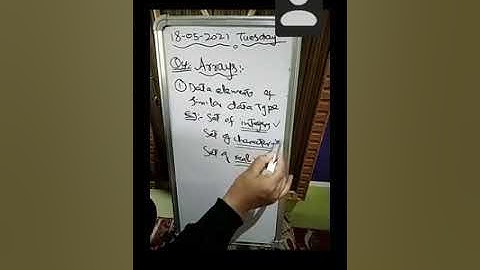 18-05-2021 Tuesday
Arrays:-
① Data elements of
similar data Type
Ex:- Set of integers ✓
Set of characters
Set of real